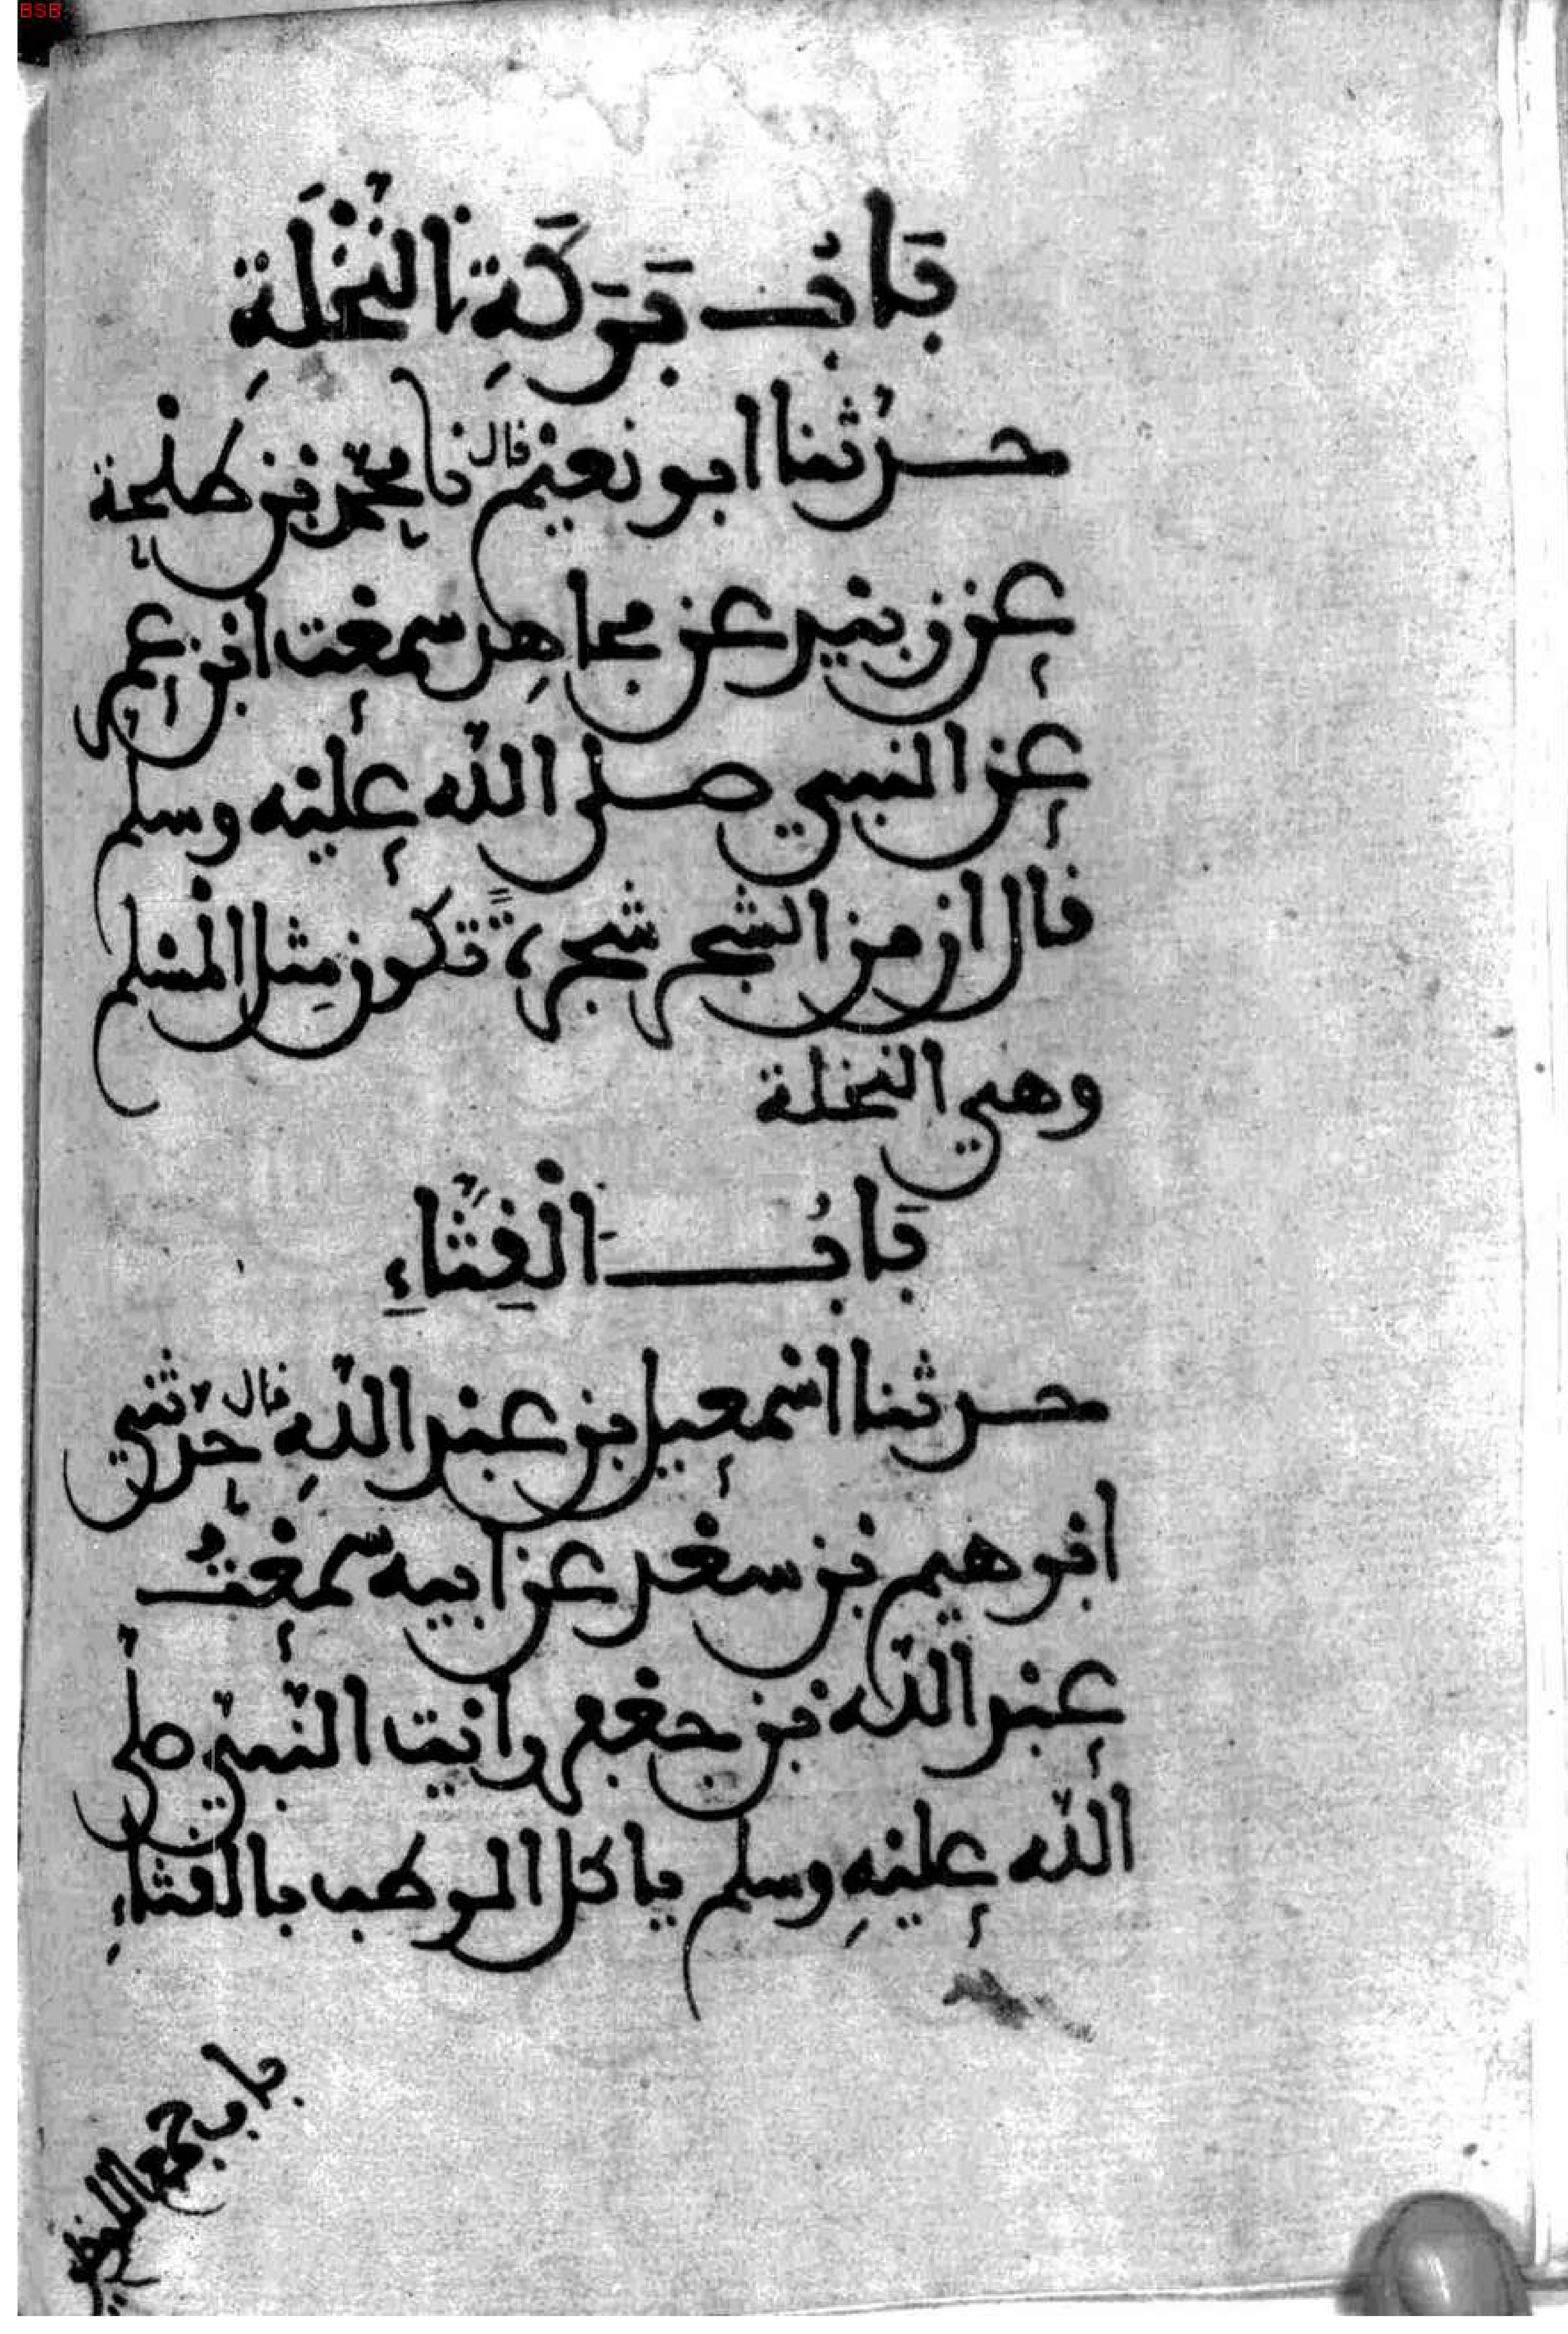 BSB
بَابُ بَرَكَةِ النَّخْلَةِ
حدثنا ابو نعيم قال نا محمد بن طلحة
عن زبيد عن مجاهد سمعت ابن عمر
عن النبي صلى الله عليه وسلم
قال ان من الشجر شجرةً تكون مثل المسلم
وهي النخلة
بَابُ الْقِثَّاءِ
حدثنا اسمعيل بن عبد الله قال حدثني
ابرهيم بن سعد عن ابيه سمعتُ
عبد الله بن جعفر رايت النبي صلى
الله عليه وسلم ياكل الرطب بالقثاءِ
باب جمع اللونين